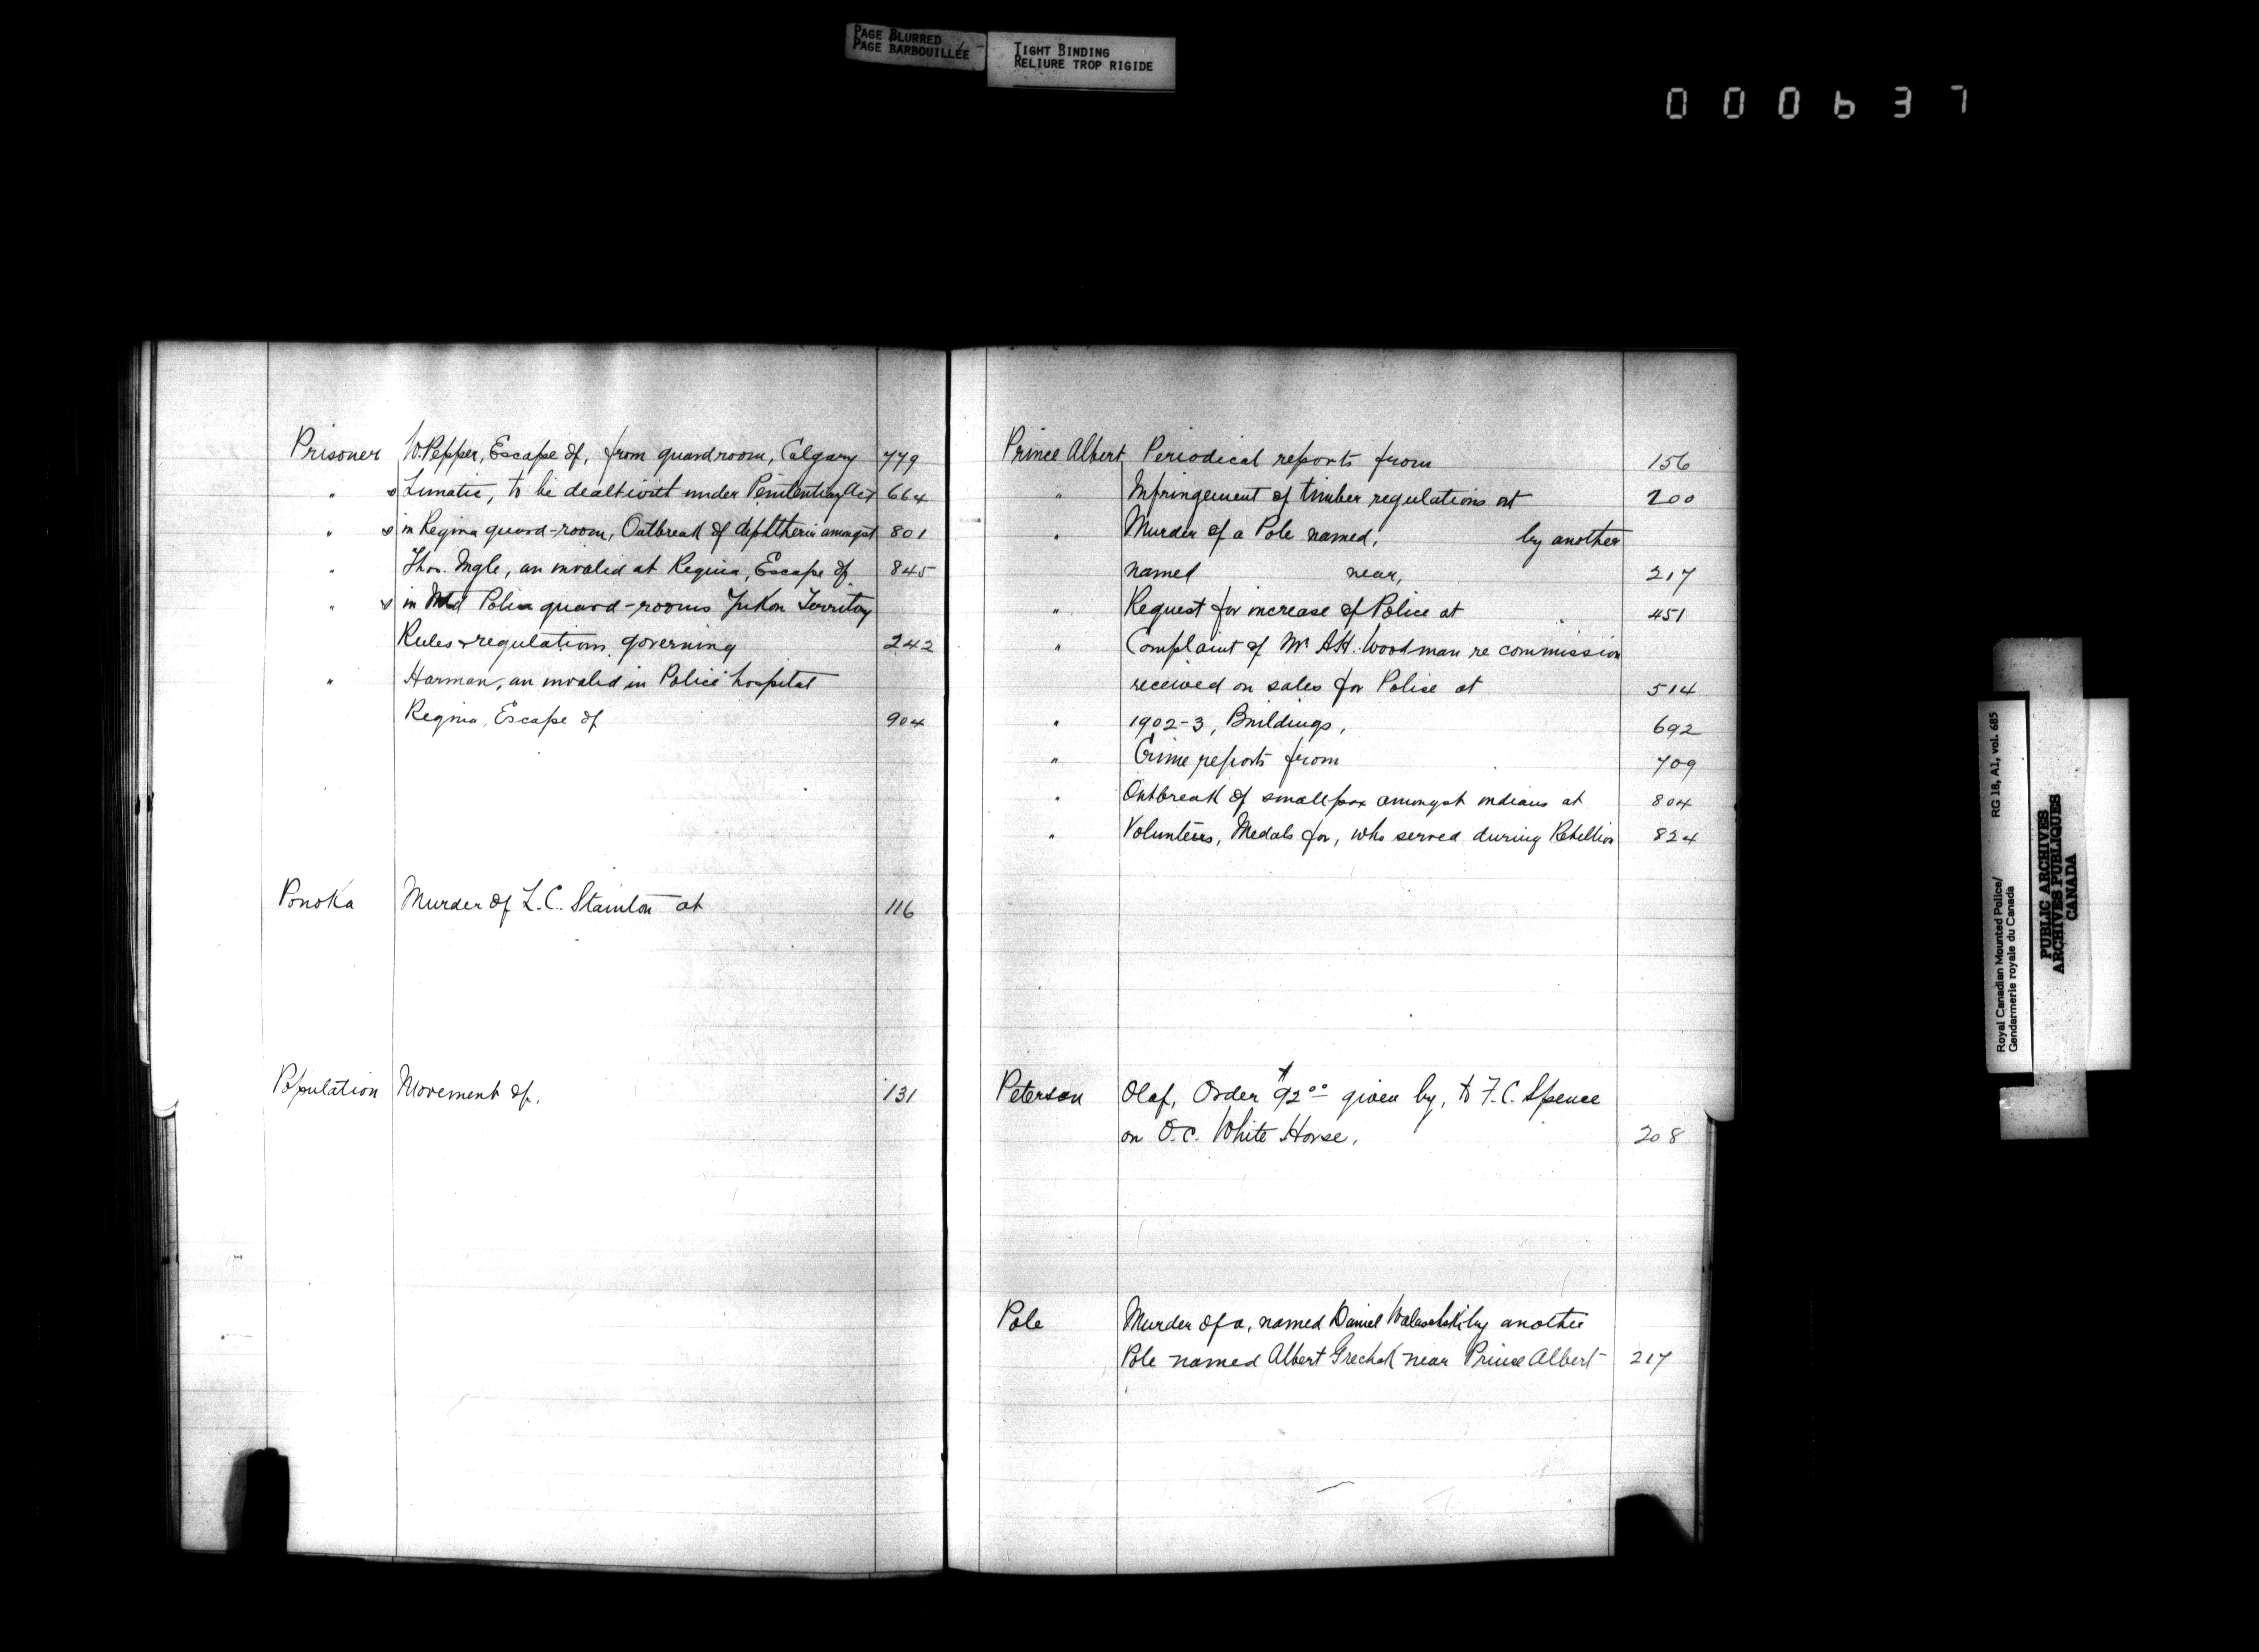 PAGE BLURRED
PAGE BARBOUILLÉE
TIGHT BINDING
RELIURE TROP RIGIDE
000637
Prisoner W. Pepper, Escape of, from guardroom, Calgary 779
" s Lunatic, to be dealt with under Penitentiary Act 664
" s in Regina guard-room, Outbreak of diphtheria amongst 801
" Thos. Ingle, an invalid at Regina, Escape of 845
" s in Mtd Police guard-rooms Yukon Territory
Rules & regulations governing 242
" Harman, an invalid in Police hospital
Regina, Escape of 904
Ponoka Murder of L. C. Stainton at 116
Population Movement of, 131
Prince Albert Periodical reports from 156
" Infringement of timber regulations at 200
" Murder of a Pole named, by another
named near, 217
" Request for increase of Police at 451
" Complaint of Mr A.H. Woodman re commission
received on sales for Police at 514
" 1902-3, Buildings, 692
" Crime reports from 709
" Outbreak of smallpox amongst indians at 804
" Volunteers, Medals for, who served during Rebellion 824
Peterson Olaf, Order $92.00 given by, to F. C. Spence
on O.C. White Horse, 208
Pole Murder of a, named Daniel by another
Pole named Albert near Prince Albert 217
Royal Canadian Mounted Police/ RG 18, A1, vol. 685
Gendarmerie royale du Canada
PUBLIC ARCHIVES
ARCHIVES PUBLIQUES
CANADA